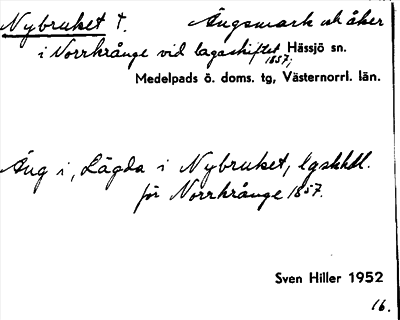 Nybruket †. Ängsmark och åker
i Norrkrånge vid lagaskiftet 1857; Hässjö sn.
Medelpads ö. doms. tg, Västernorrl. län.
Äng i, Lägda i Nybruket, lgskhdl.
för Norrkrånge 1857.
Sven Hiller 1952
16.